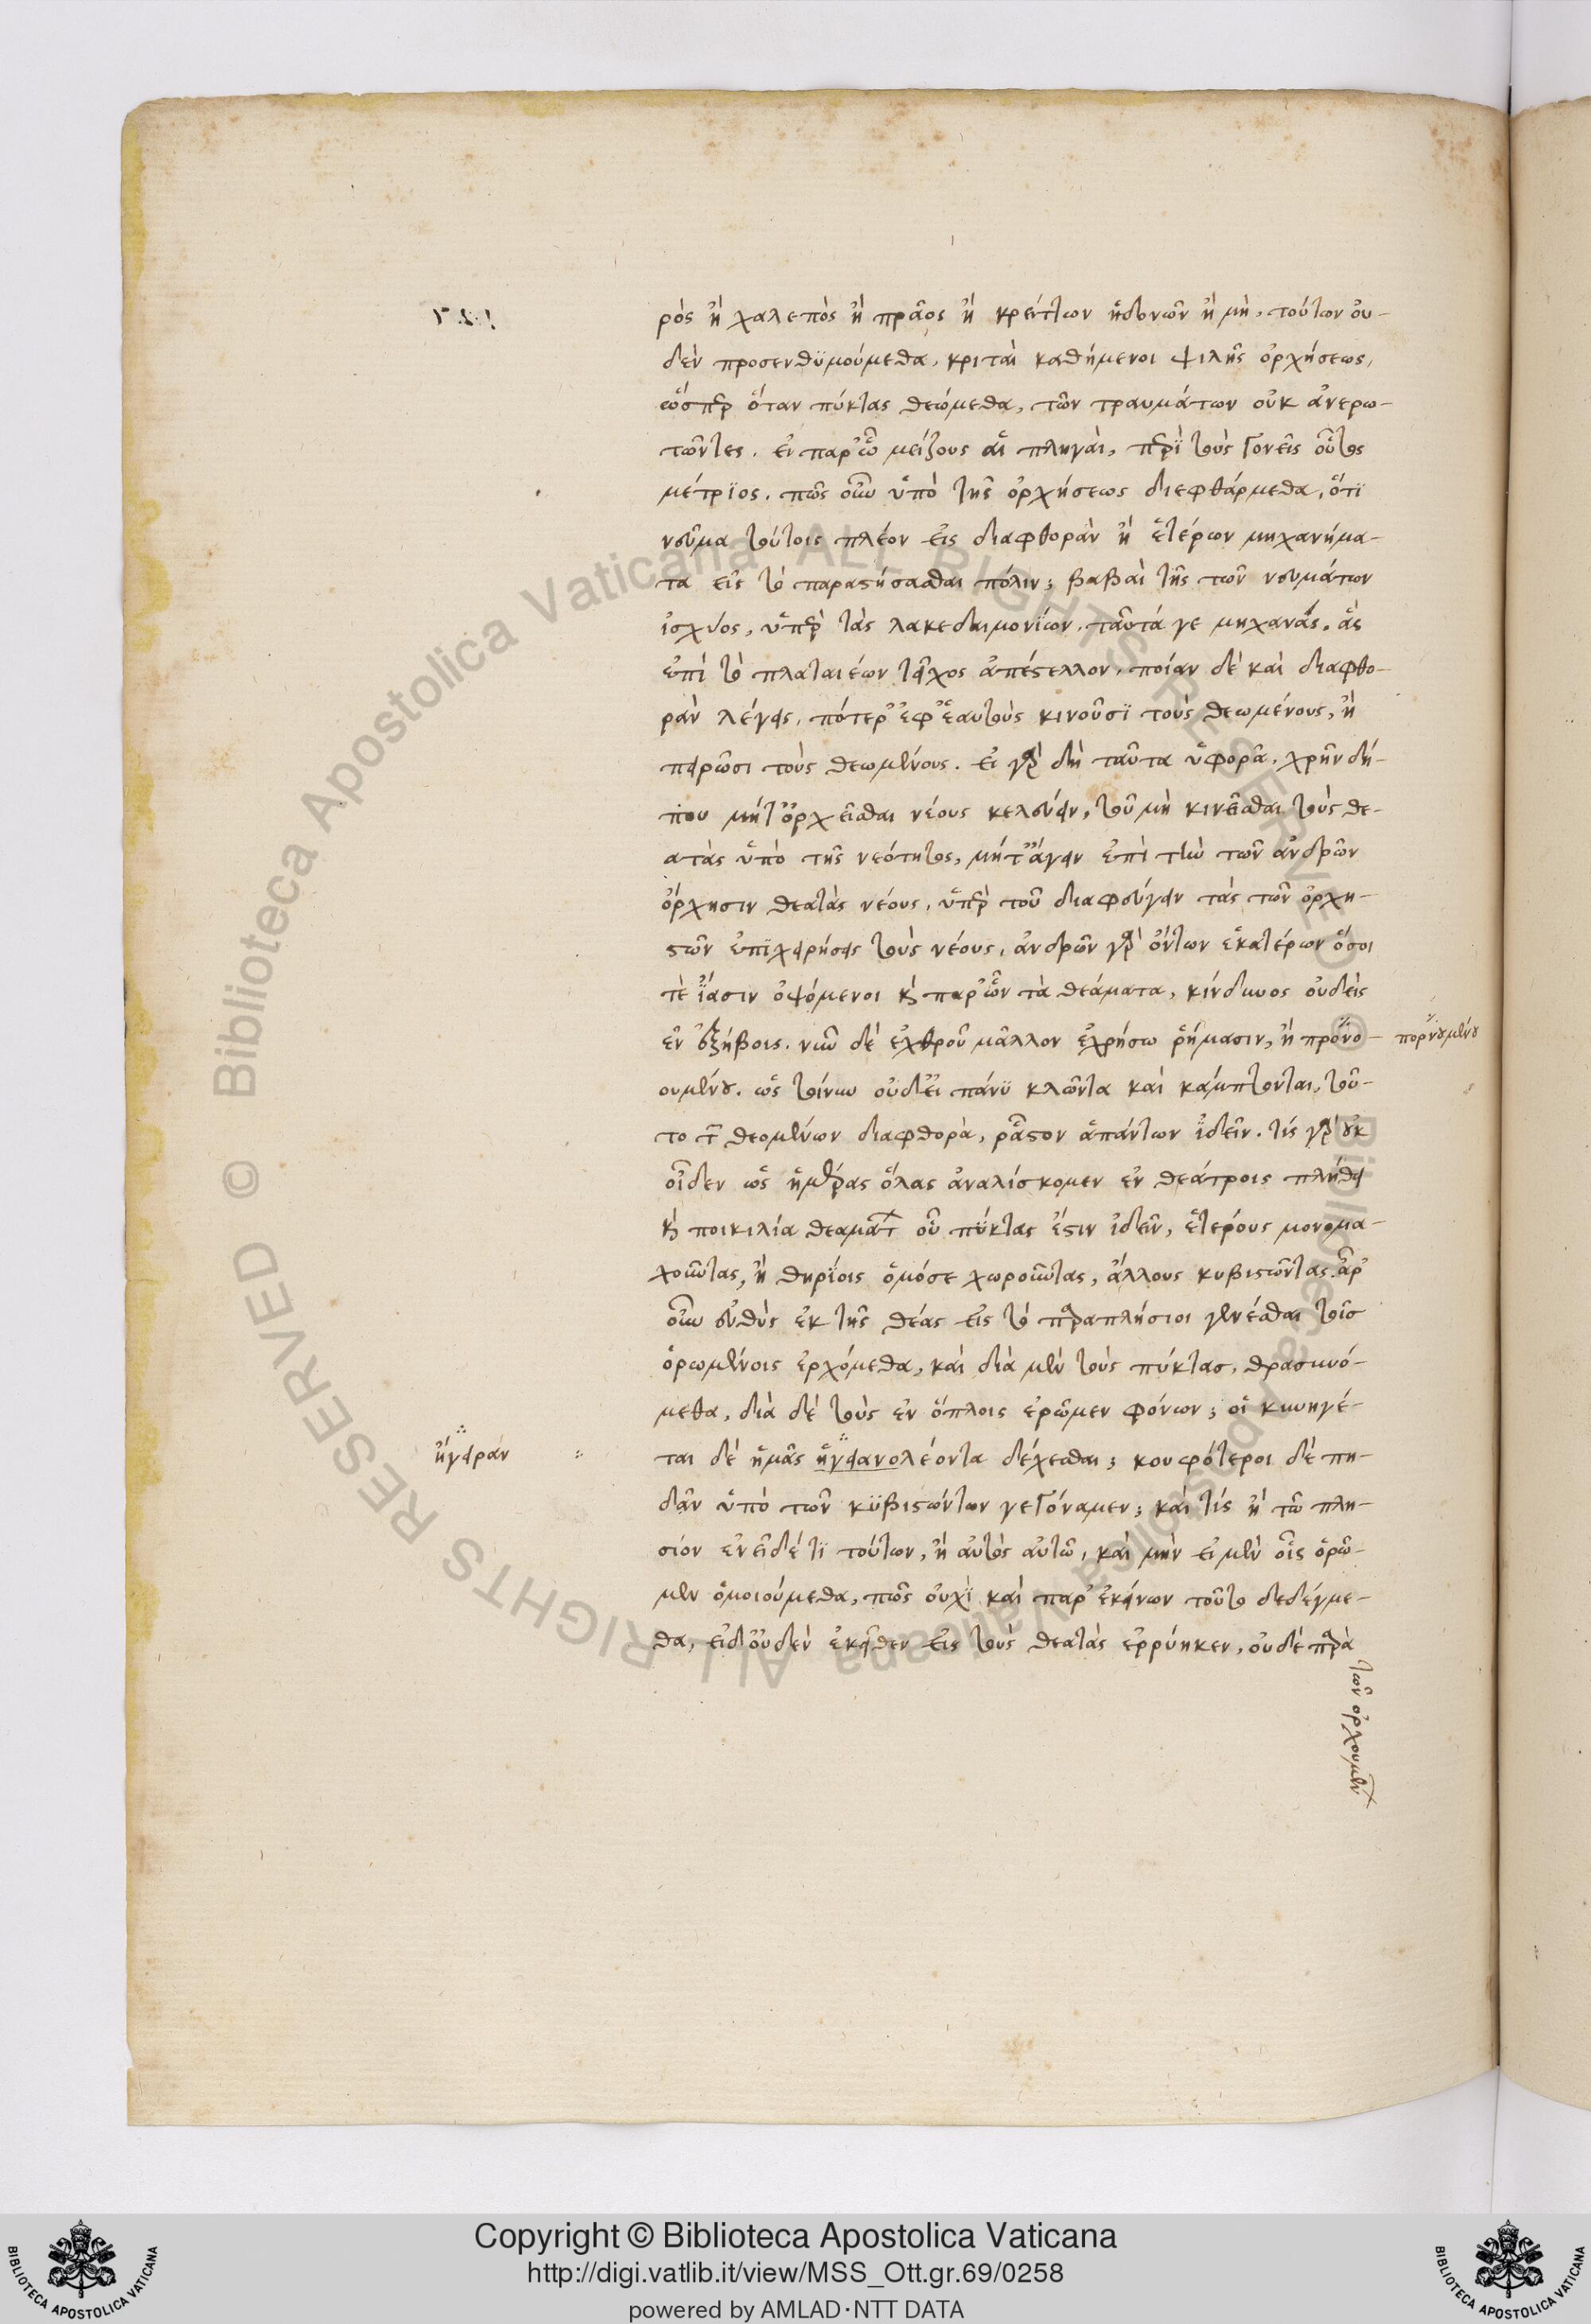 ρὸς ἢ χαλεπὸς ἢ πρᾶος ἢ κρείττων ἡδονῶν ἢ μὴ, τούτων οὐ-
δὲν προσενθϋμούμεθα, κριταὶ καθήμενοι ψιλῆς ὀρχήσεως,
ὥσπερ ὅταν πύκτας θεώμεθα, τῶν τραυμάτων οὐκ ἀνερω-
τῶντες. εἰ παρ' ᾧ μείζους αἱ πληγαὶ, περὶ τοὺς γονεῖς οὗτος
μέτριος. πῶς οὖν ὑπὸ τῆς ὀρχήσεως διεφθάρμεθα, ὅτι
νεῦμα τούτοις πλέον εἰς διαφθορὰν ἢ ἑτέρων μηχανήμα-
τα εἰς τὸ παραστήσασθαι πόλιν; βαβαὶ τῆς τῶν νευμάτων
ἰσχύος, ὑπὲρ τὰς λακεδαιμονίων. ταῦτά γε μηχανάς. ἃς
ἐπὶ τὸ πλαταιέων τεῖχος ἀπέστελλον. ποίαν δὲ καὶ διαφθο-
ρὰν λέγεις, πότερ' ἐφ' ἑαυτοὺς κινοῦσϊ τοὺς θεωμένους, ἢ
πειρῶσι τοὺς θεωμένους. εἰ γὰρ δὴ ταῦτα ὑφορᾶ. χρῆν δή-
που μήτ' ὀρχεῖσθαι νέους κελεύειν, τοῦ μὴ κινεῖσθαι τοὺς θε-
ατὰς ὑπὸ τῆς νεότητος, μήτ' ἄγειν ἐπὶ τὴν τῶν ἀνδρῶν
ὄρχησιν θεατὰς νέους, ὑπὲρ τοῦ διαφεύγειν τὰς τῶν ὀρχη-
στῶν ἐπϊχειρήσεις τοὺς νέους, ἀνδρῶν γὰρ ὄντων ἑκατέρων ὅσοι
τὲ ἴασιν ὀψόμενοι καὶ παρ' ὧν τὰ θεάματα, κίνδυνος οὐδεὶς
ἐν ἐξήβοις. νῦν δὲ ἐχθροῦ μᾶλλον ἐχρήσω ῥήμασιν, ἢ προνο- πορνουμένου
ουμένου. ὡς τοίνυν οὐδ' εἰ πάνϋ κλῶνται καὶ κάμπτονται, τοῦ-
το τῶν θεομένων διαφθορὰ, ῥᾷστον ἁπάντων ἰδεῖν. τίς γὰρ οὐκ
οἶδεν ὡς ἡμέρας ὅλας ἀναλίσκομεν ἐν θεάτροις πλήθει
καὶ ποικιλία θεαμάτων οὗ πύκτας ἔστιν ἰδεῖν, ἑτέρους μονομα-
χοῦντας, ἢ θηρίοις ὁμόσε χωροῦντας, ἄλλους κυβιστῶντας. ἆρ'
οὖν εὐθὺς ἐκ τῆς θέας εἰς τὸ παραπλήσιοι γενέσθαι τοῖς
ὁρωμένοις ἐρχόμεθα, καὶ διὰ μὲν τοὺς πύκτας, θρασυνό-
μεθα, διὰ δὲ τοὺς ἐν ὅπλοις ἐρῶμεν φόνων; οἱ κυνηγέ-
ἤγειραν ται δὲ ἡμᾶς ἥγειανολέοντα δέχεσθαι; κουφότεροι δὲ πη-
δᾶν ὑπὸ τῶν κϋβιστώντων γεγόναμεν; καὶ τίς ἢ τῶ πλη-
σίον ἐνεῖδέ τϊ τούτων, ἢ αὐτὸς αὑτῶ, καὶ μὴν εἰ μὲν οἷς ὁρῶ-
μεν ὁμοιούμεθα, πῶς οὐχὶ καὶ παρ' ἐκείνων τοῦτο δεδέγμε-
θα, εἰ δ' οὐδὲν ἐκεῖθεν εἰς τοὺς θεατὰς ἐρρύηκεν, οὐδὲ παρὰ
τῶν ὀρχουμένων
Copyright © Biblioteca Apostolica Vaticana
http://digi.vatlib.it/view/MSS_Ott.gr.69/0258
powered by AMLAD·NTT DATA